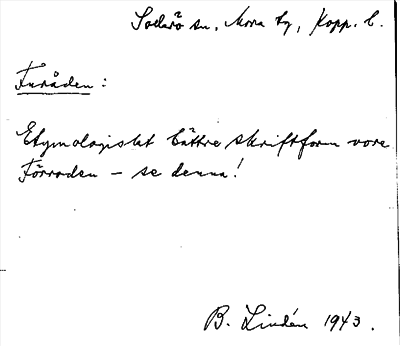 Sollerö sn, Mora tg, Kopp. l.
Furåden:
Etymologiskt bättre skriftform vore
Förroden – se denna!
B. Lindén 1943.